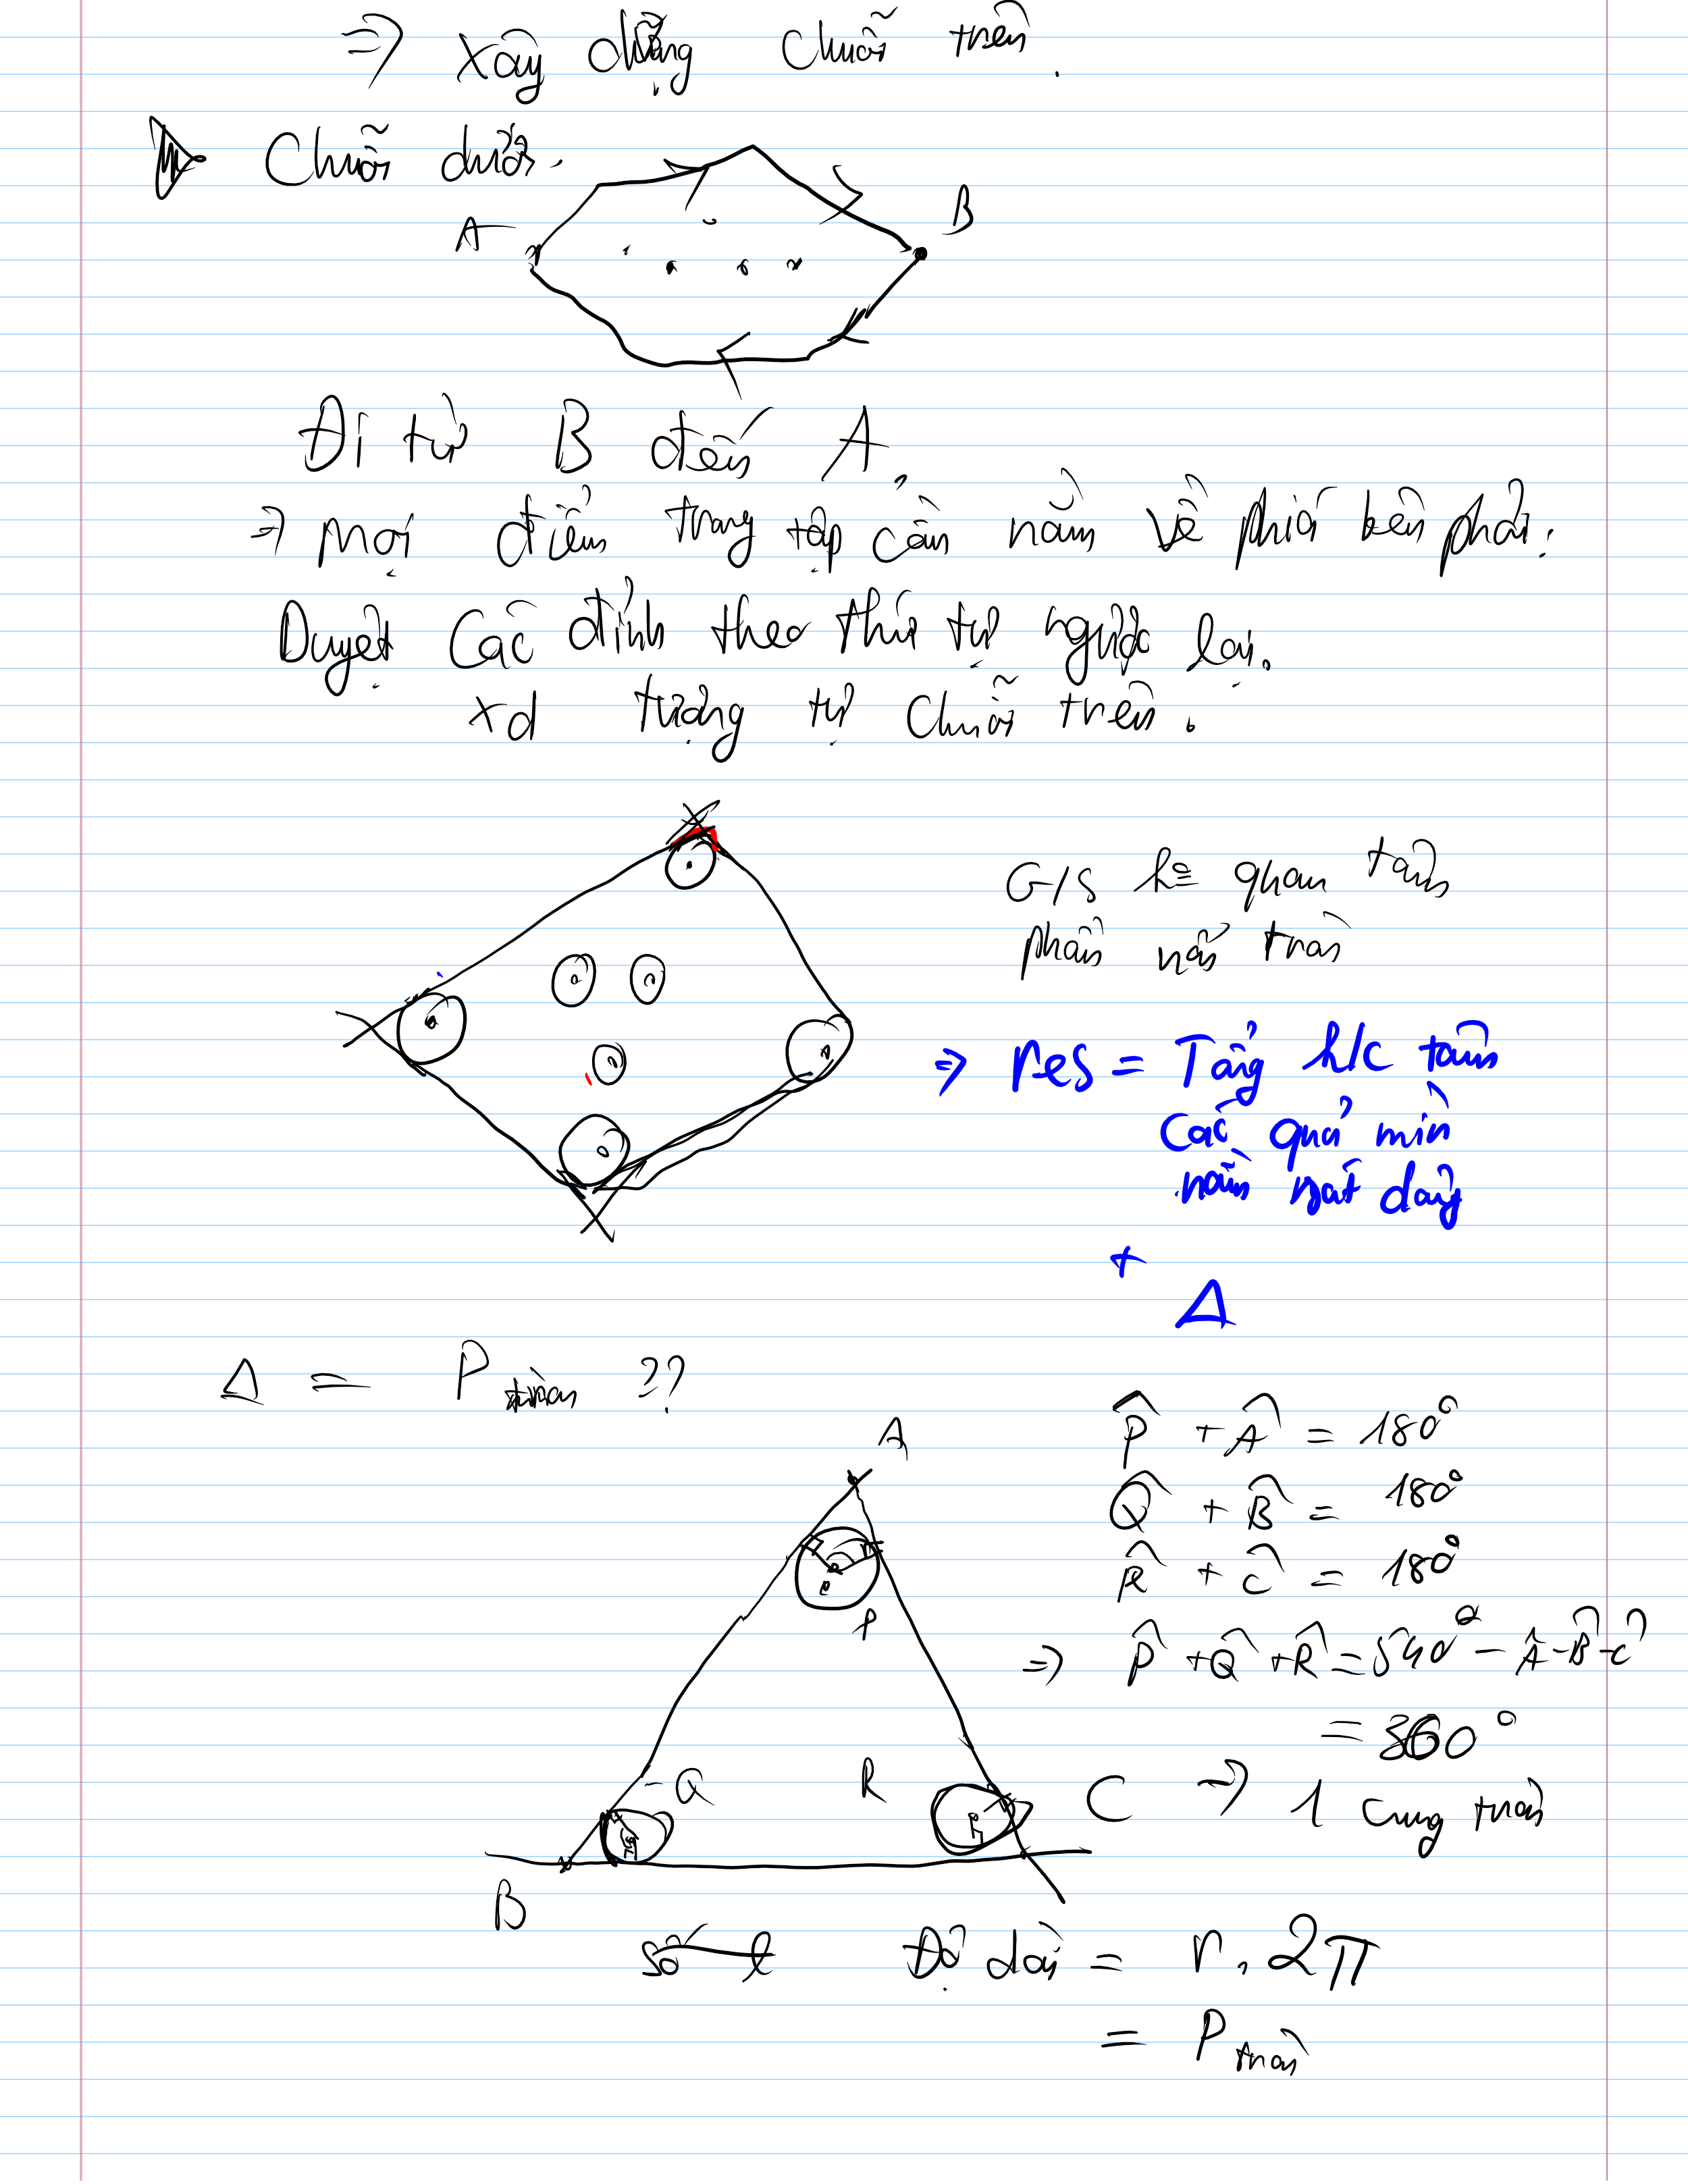 ⇒ Xây dựng chuỗi trên.
Chuỗi dưới.
A
B
Đi từ B đến A
⇒ mọi điểm trong tập cần nằm về phía bên phải.
Duyệt các đỉnh theo thứ tự ngược lại.
xd tương tự chuỗi trên.
G/S quan tâm
phần tròn
⇒ res = Tổng k/c tâm
các quả mìn
nằm ngoài
+
Δ
Δ = P tròn ??
A
P
Q
R
B
C
P̂ + Â = 180°
Q̂ + B̂ = 180°
R̂ + Ĉ = 180°
⇒ P̂ + Q̂ + R̂ = 540° - Â - B̂ - Ĉ
= 360°
⇒ 1 cung tròn
Độ dài = r . 2π
= P tròn